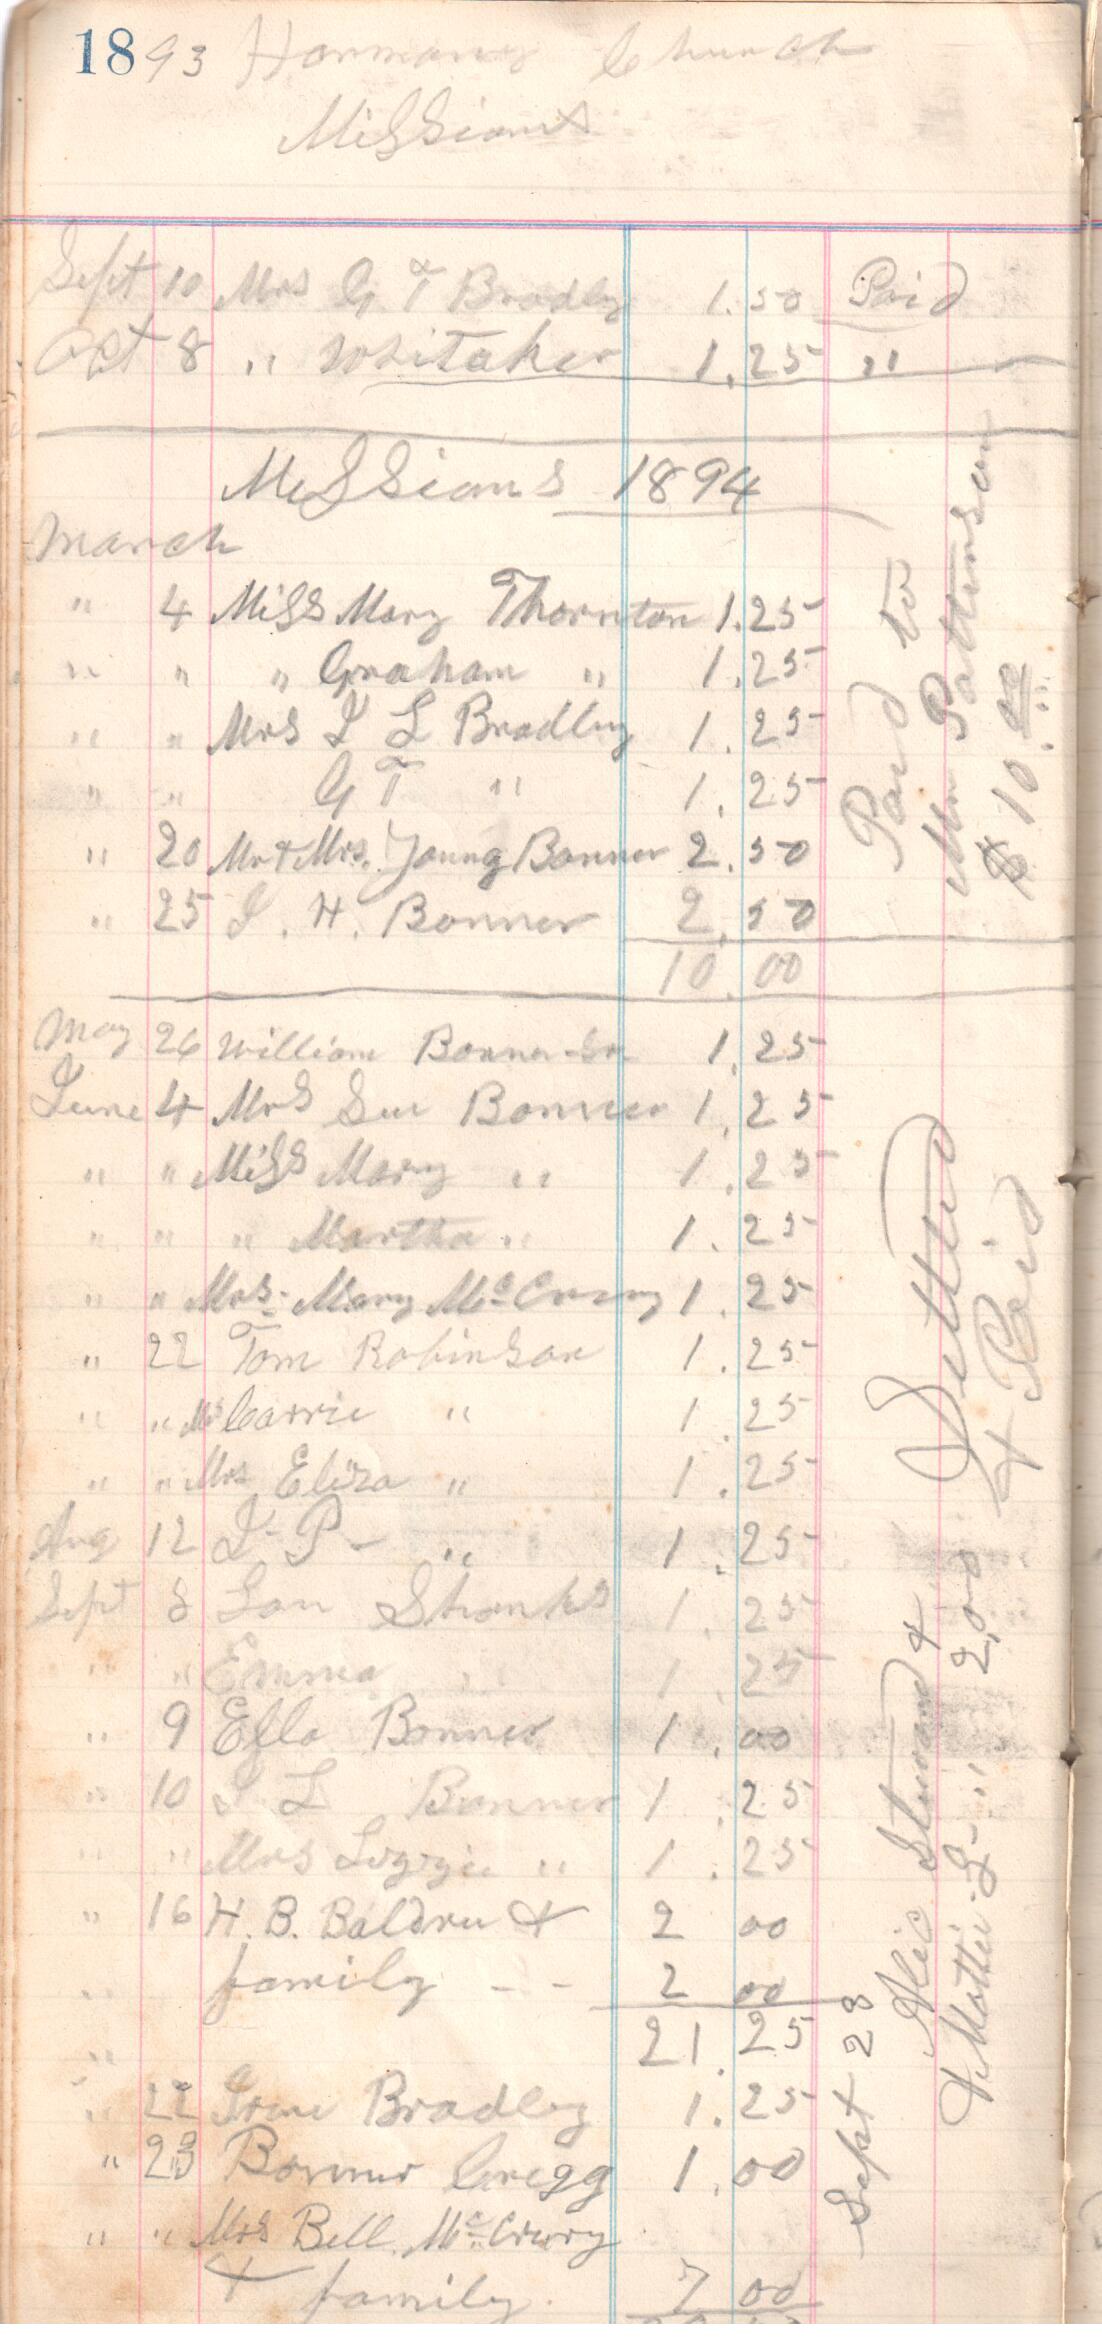 1893 Harmony Church
Missions
Sept 10 Mrs G. T Bradley 1.50 Paid
Oct 8 " Whitaker 1.25 "
Missions 1894
March
" 4 Miss Mary Thornton 1.25
" " " Graham " 1.25
" " Mrs I L Bradley 1.25
" " G T " 1.25
" 20 Mr + Mrs. Young Bonner 2.50
" 25 I. H. Bonner 2.50
10.00
Paid to
Mr Pattinson
$10.00
May 26 William Bonner Sr 1.25
June 4 Mrs Sue Bonner 1.25
" " Miss Mary " 1.25
" " " Martha " 1.25
" " Mrs. Mary McCrary 1.25
" 22 Tom Robinson 1.25
" " Carrie " 1.25
" " Mrs Eliza " 1.25
Aug 12 I P " 1.25
Sept 8 Lou Shanks 1.25
" " Emma " 1.25
" 9 Ella Bonner 1.00
" 10 I L Bonner 1.25
" " Mrs Lizzie " 1.25
" 16 H. B. Baldree + 2 00
" family - - 2 00
" 21.25
Settled
+ Paid
" 22 Irene Bradley 1.25
" 23 Bonner Gregg 1.00
" " Mrs Bell McCrary
+ family. 7 00
Sept 23 Alic Steward +
+ Mattie S " 2,00